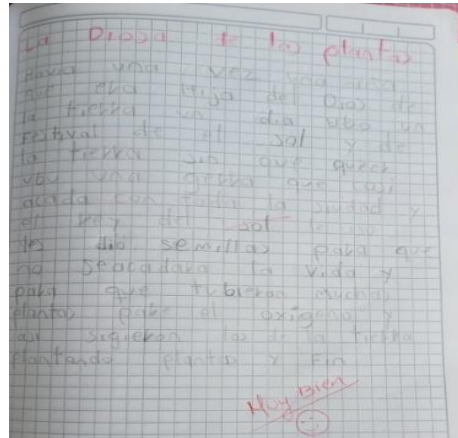 La Diosa de las plantas
Havia una vez una niña
que era Hija del Dios de
la tierra un dia ubo un
Festival de el sol y de
la tierra sin que querer
ubu una gerra que casi
acaba con toda la siudad y
el rey del sol
les dio semillas para que
no seacabara la vida y
para que tubieran muchas
plantas para el oxigeno y
asi sigieron los de la tierra
plantando plantas y Fin
Muy Bien